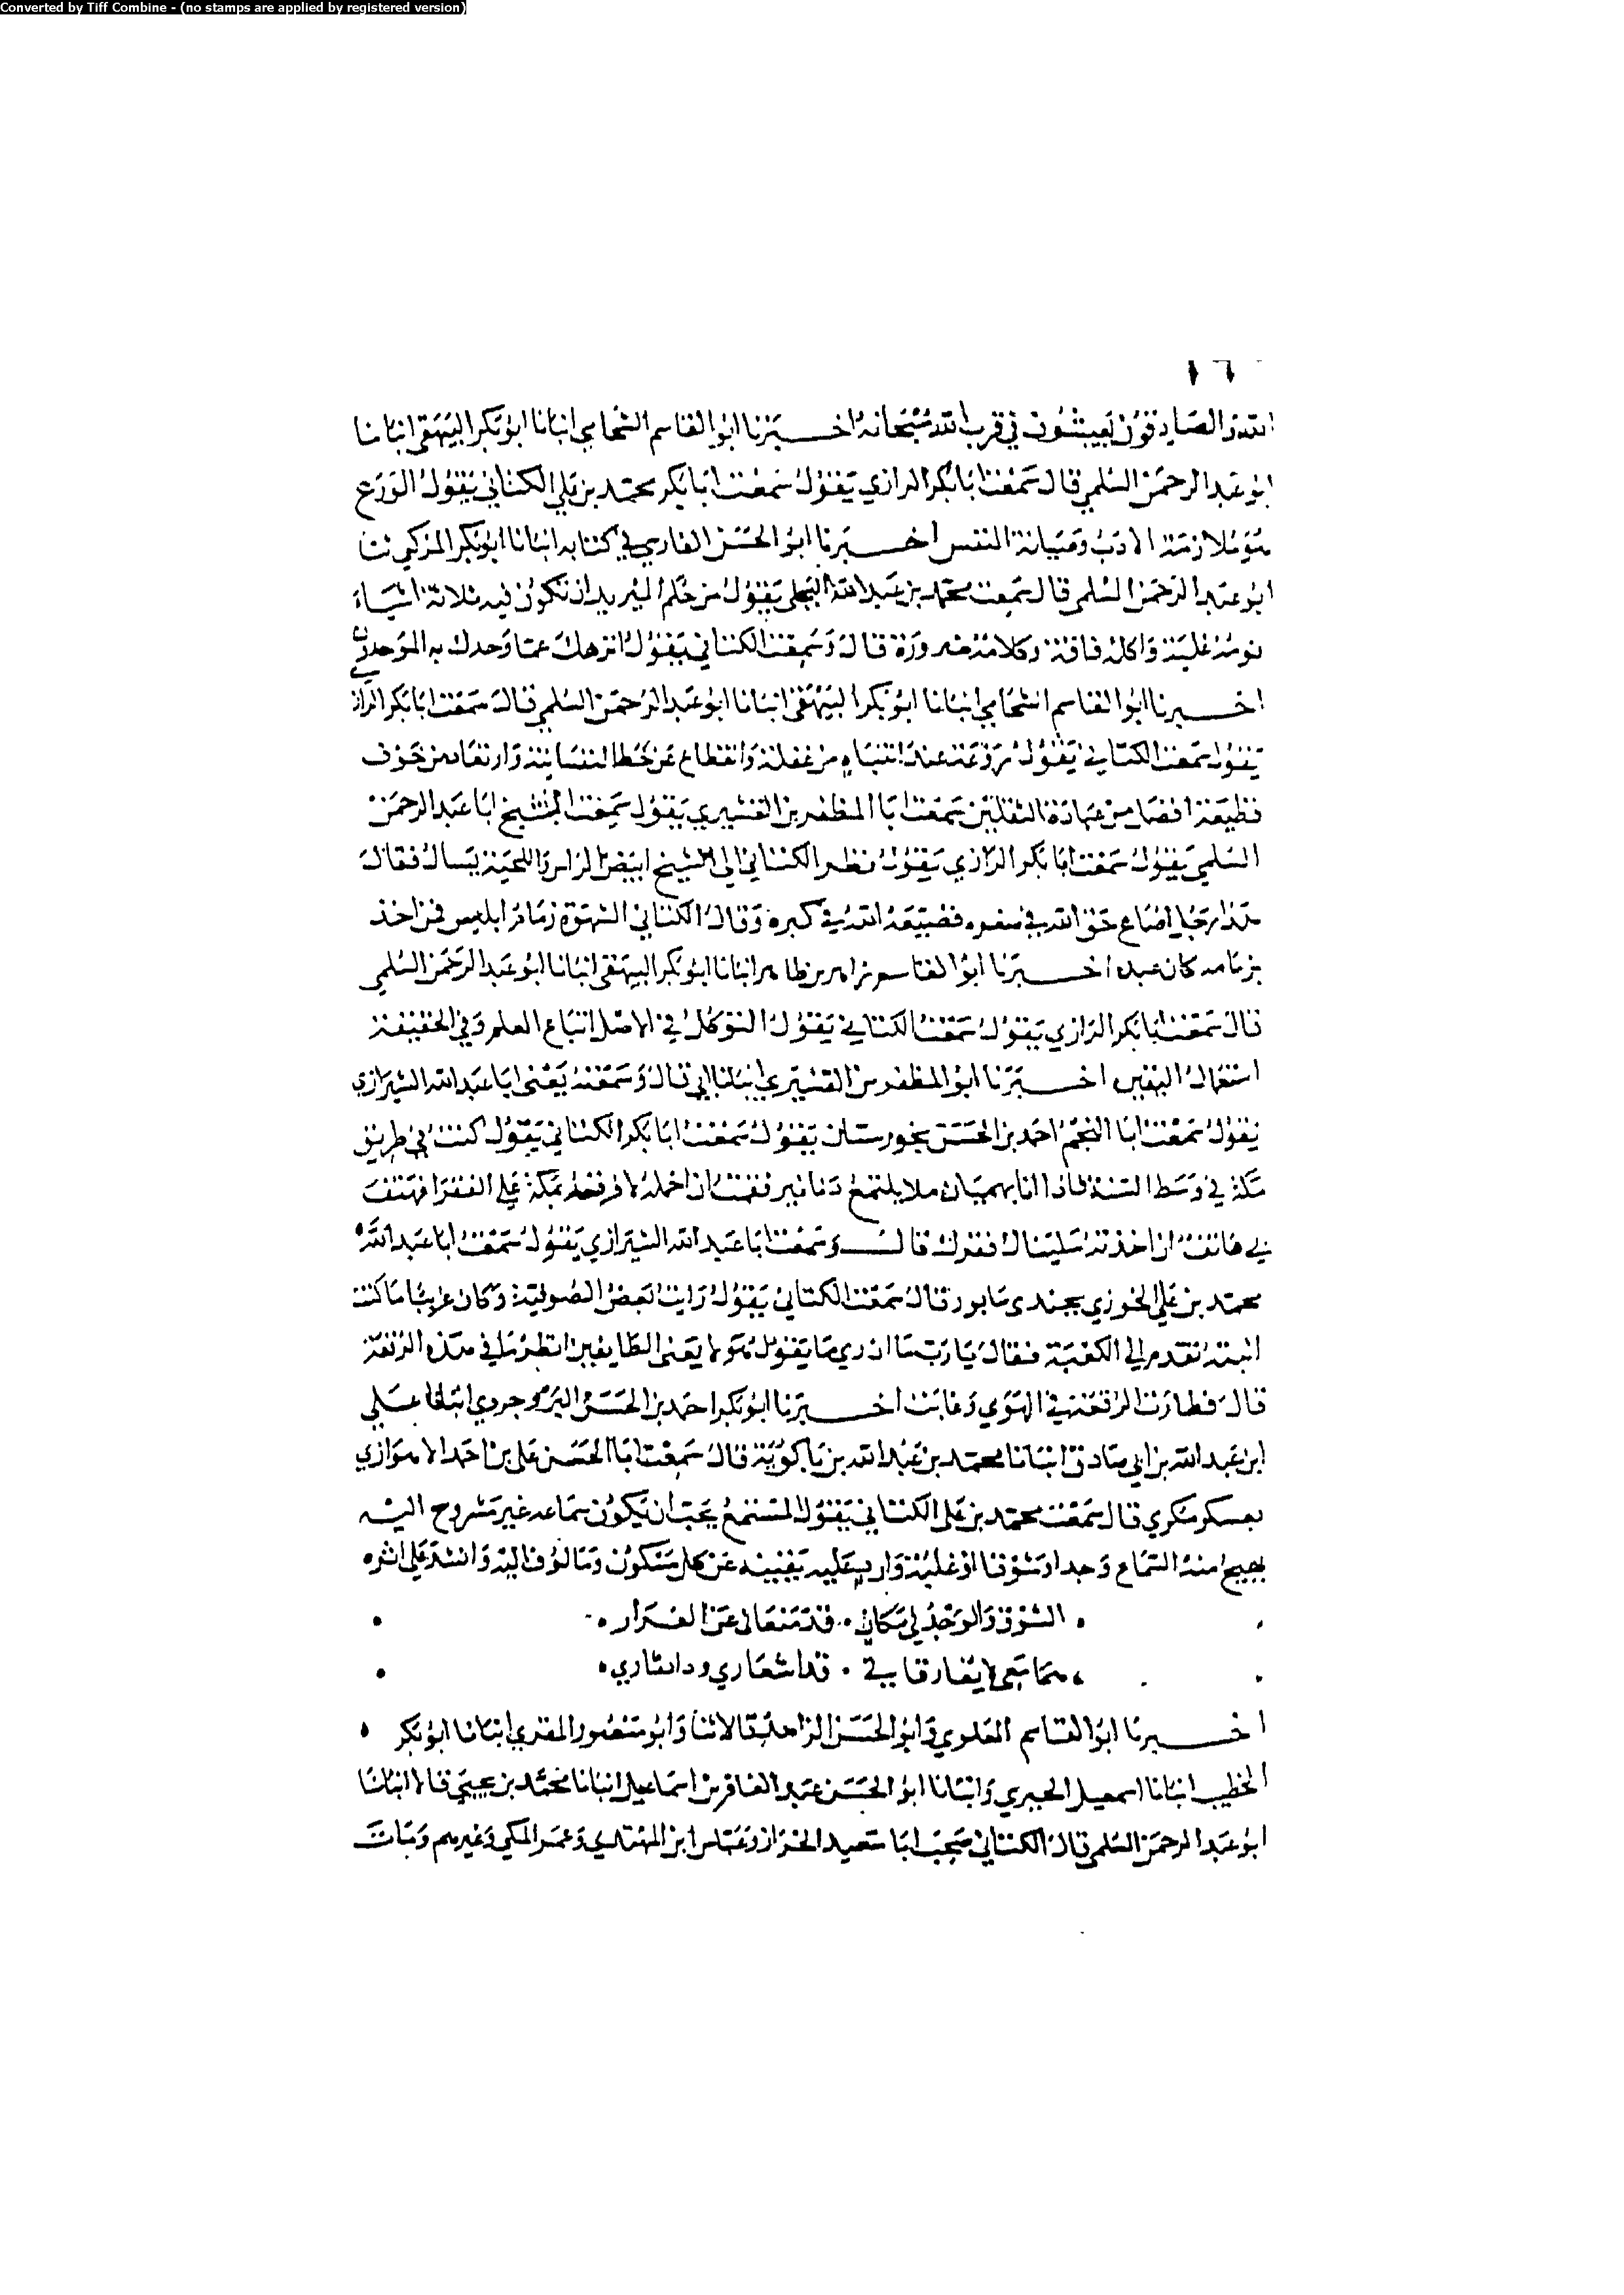 Converted by Tiff Combine - (no stamps are applied by registered version)
١٦
الله والصادقون يعيشون في قرب الله سبحانه اخبرنا ابو القاسم الشحامي انبانا ابو بكر البيهقي انبانا
ابو عبد الرحمن السلمي قال سمعت ابا بكر الرازي يقول سمعت ابا بكر محمد بن علي الكتاني يقول الورع
هو ملازمة الادب وصيانة النفس اخبرنا ابو الحسن الفارسي في كتابه انبانا ابو بكر المزكي ثنا
ابو عبد الرحمن السلمي قال سمعت محمد بن عبد الله البجلي يقول من حكم المريد ان تكون فيه ثلاثة اشياء
نومه غلبة واكله فاقة وكلامه ضرورة قال وسمعت الكتاني يقول انزهك عما وحدك به الموحدون
اخبرنا ابو القاسم الشحامي انبانا ابو بكر البيهقي انبانا ابو عبد الرحمن السلمي قال سمعت ابا بكر الرازي
يقول سمعت الكتاني يقول روعة عند انتباه من غفلة وانقطاع عن حظ النفسانية وارتعاد من خوف
قطيعة افضل من عبادة الثقلين سمعت ابا المظفر بن القشيري يقول سمعت الشيخ ابا عبد الرحمن
السلمي يقول سمعت ابا بكر الرازي يقول نظر الكتاني الى شيخ ابيض الراس واللحية يسال فقال
هذا رجل اضاع حق الله في صغره فضيعه الله في كبره وقال الكتاني الشهوة زمام ابليس فمن اخذ
بزمامه كان عبده اخبرنا ابو القاسم زاهر بن طاهر انبانا ابو بكر البيهقي انبانا ابو عبد الرحمن السلمي
قال سمعت ابا بكر الرازي يقول سمعت الكتاني يقول التوكل في الاصل اتباع العلم وفي الحقيقة
استعمال اليقين اخبرنا ابو المظفر بن القشيري انبانا ابي قال وسمعته يعني ابا عبد الله الشيرازي
يقول سمعت ابا النجم احمد بن الحسن بخورستان يقول سمعت ابا بكر الكتاني يقول كنت في طريق
مكة في وسط السنة فاذا انا بهميان ملا يلتمع دنانير فهممت ان احمله لافرقه بمكة على الفقرا فهتف
بي هاتف ان اخذته سلبناك فقرك قال وسمعت ابا عبد الله الشيرازي يقول سمعت ابا عبد الله
محمد بن علي الخوزي بجندي سابور قال سمعت الكتاني يقول رايت بعض الصوفية وكان غريبا ما كنت
اثبته تقدم الى الكعبة فقال يا رب ما ادري ما يقول هولا يعني الطايفين انظر ما في هذه الرقعة
قال فطارت الرقعة في الهوي وغابت اخبرنا ابو بكر احمد بن الحسن البروجردي انبانا علي
ابن عبد الله بن ابي صادق انبانا محمد بن عبد الله بن باكوية قال سمعت ابا الحسن علي بن احمد الاهوازي
بعسكر مكرم قال سمعت محمد بن علي الكتاني يقول المستمع يجب ان يكون سماعه غير مستروح اليه
يهيج منه السماع وجدا وشوقا او غلبة وارد عليه يفنيه عن كل مسكون ومالوف اليه وانشد على اثره
الشوق والوجد في مكاني قد منعاني عن القرار
هما معي لا يفارقاني قذا شعاري وذا دثاري
اخبرنا ابو القاسم العلوي وابو الحسن الزاهد قالا ثنا وابو منصور المقري انبانا ابو بكر
الخطيب انبانا اسمعيل الحيري وانبانا ابو الحسن عبد الغافر بن اسماعيل انبانا محمد بن يحيى قالا انبانا
ابو عبد الرحمن السلمي قال الكتاني صحب ابا سعيد الخراز وعباس ابن المهتدي وعمر المكي وغيرهم ومات